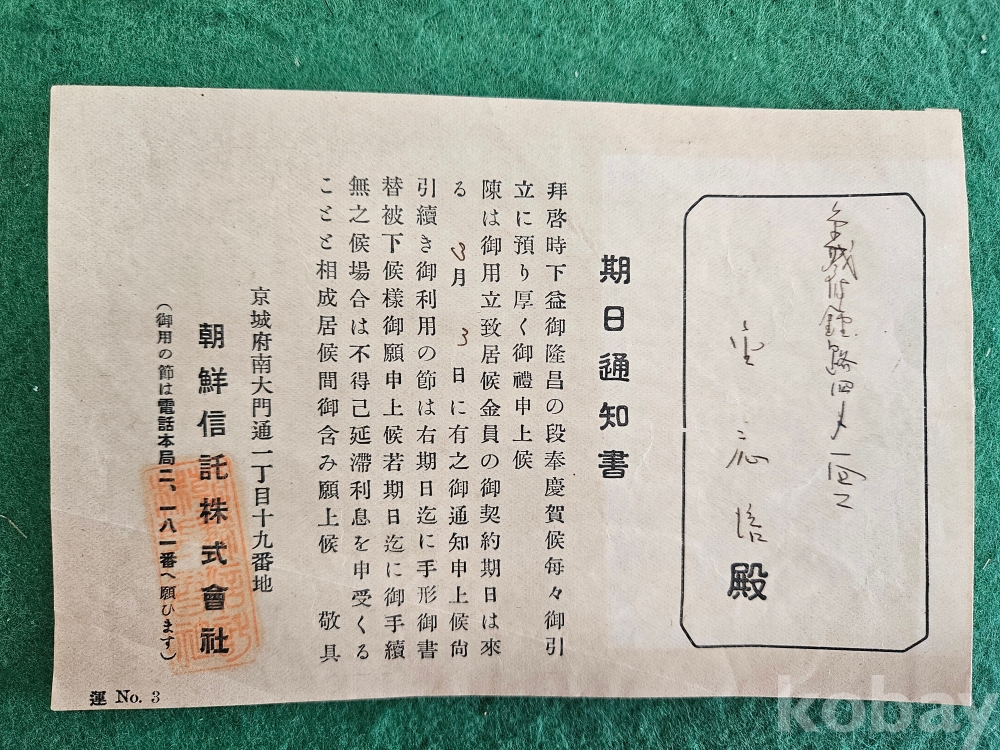 京城府鍾路四丁目一四二
殿
期日通知書
拜啓時下益御隆昌の段奉慶賀候每々御引
立に預り厚く御禮申上候
陳は御用立致居候金員の御契約期日は來
る 3月 3日に有之御通知申上候尙
引續き御利用の節は右期日迄に手形御書
替被下候樣御願申上候若期日迄に御手續
無之候場合は不得已延滯利息を申受くる
ことと相成居候間御含み願上候 敬具
京城府南大門通一丁目十九番地
朝鮮信託株式會社
(御用の節は電話本局二、一八一番へ願ひます)
運 No. 3
kobay